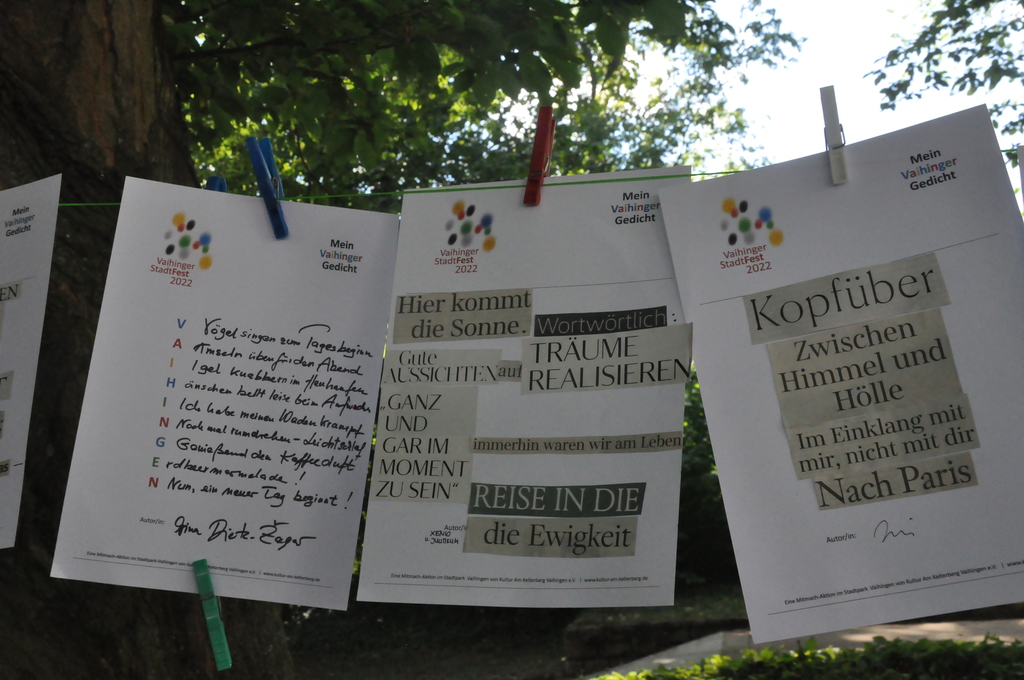 Mein
Vaihinger
Gedicht
EN
Vaihinger
StadtFest
2022
Mein
Vaihinger
Gedicht
Vögel singen zum Tagesbeginn
Amseln üben für den Abend
Igel knabbern im
bellt leise beim
Ich habe meinen Wadenkrampf
Noch mal rumdrehen - Leichtschlaf
Genießend den Kaffeeduft
Erdbeermarmelade!
Nun, ein neuer Tag beginnt!
Autor/in:
Eine Mitmach-Aktion im Stadtpark Vaihingen von Kultur Am Kelterberg e.V. | www.kultur-am-kelterberg.de
Vaihinger
StadtFest
2022
Mein
Vaihinger
Gedicht
Hier kommt
die Sonne.
Wortwörtlich:
Gute
AUSSICHTEN auf
TRÄUME
REALISIEREN
„GANZ
UND
GAR IM
MOMENT
ZU SEIN“
immerhin waren wir am Leben
REISE IN DIE
die Ewigkeit
Autor/i
XENIO
Eine Mitmach-Aktion im Stadtpark Vaihingen von Kultur Am Kelterberg Vaihingen e.V. | www.kultur-am-kelterberg.de
Vaihinger
StadtFest
2022
Mein
Vaihinger
Gedicht
Kopfüber
Zwischen
Himmel und
Hölle
Im Einklang mit
mir, nicht mit dir
Nach Paris
Autor/in:
Eine Mitmach-Aktion im Stadtpark Vaihingen von Kultur Am Kelterberg Vaihingen e.V. | www.